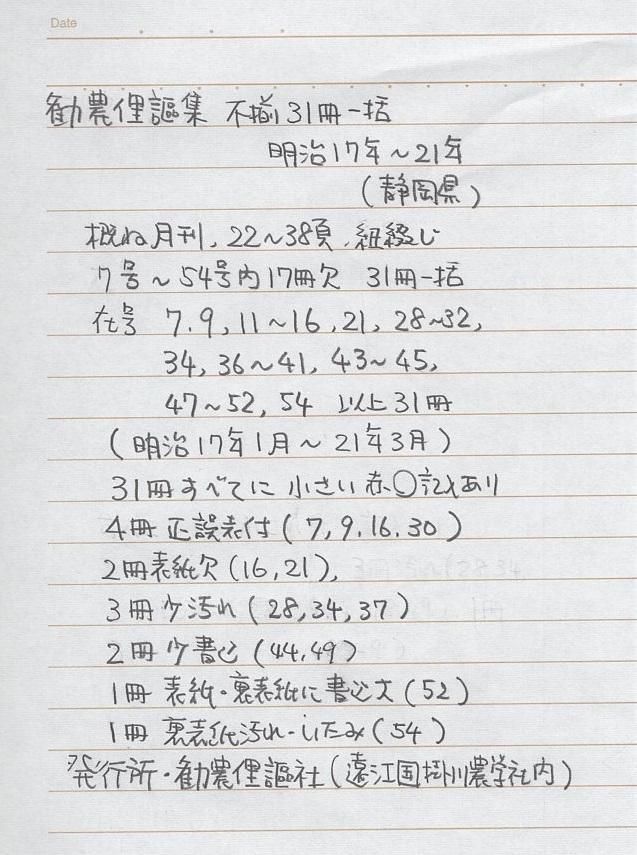 Date
勧農俚謳集 不揃31冊一括
明治17年～21年
(静岡県)
概ね月刊, 22～38頁, 紐綴じ
7号～54号内17冊欠 31冊一括
在号 7. 9, 11～16, 21, 28～32,
34, 36～41, 43～45,
47～52, 54 以上31冊
(明治17年1月～21年3月)
31冊すべてに 小さい赤○記入あり
4冊 正誤表付(7, 9. 16. 30)
2冊表紙欠(16, 21),
3冊少汚れ(28, 34, 37)
2冊少書込(44, 49)
1冊 表紙・裏表紙に書込大(52)
1冊 裏表紙汚れ・いたみ(54)
発行所・勧農俚謳社(遠江国掛川農学社内)